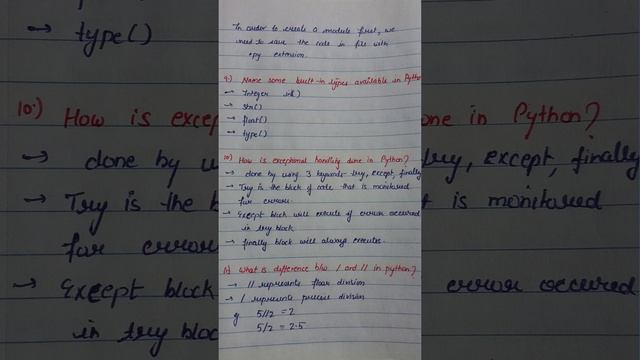 In order to create a module first, we
need to save the code in file with
.py extension.
9.) Name some built-in types available in Python
→ Integer int()
→ str()
→ float()
→ type()
10.) How is exceptional handling done in Python?
→ done by using 3 keywords try, except, finally
→ Try is the block of code that is monitored
for errors.
→ Except block will execute if error occured
in try block
→ finally block will always execute.
11) What is difference b/w / and // in python?
→ // represents floor division
→ / represents precise division
eg. 5//2 = 2
5/2 = 2.5
→ type()
10.) How is excep
one in Python?
→ done by u
try, except, finally
→ Try is the b
t is monitored
for error
→ Except block
error occured
in try bloc